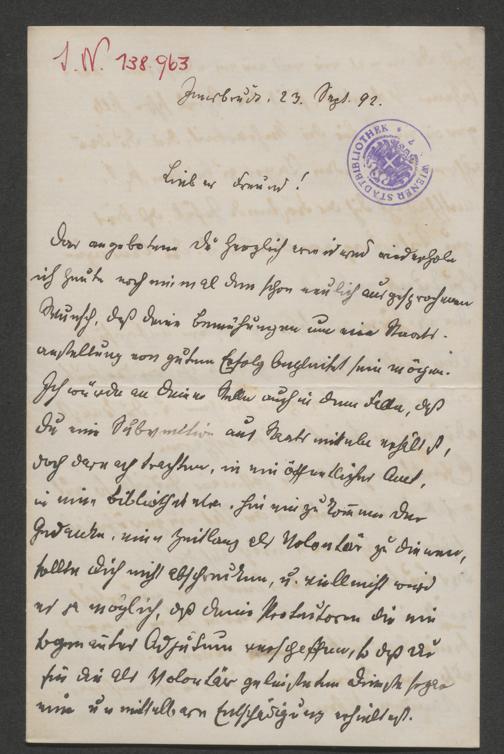 I. N. 138.963
Innsbruck. 23. Sept. 92.
WIENER STADTBIBLIOTHEK
Lieber Freund!
Das angebotene Du herzlich erwidernd wiederhole
ich heute noch einmal den schon neulich ausgesprochenen
Wunsch, daß deine Bemühungen um eine Staats-
anstellung von gutem Erfolg begleitet sein mögen.
Ich würde an deiner Stelle auch in dem Falle, daß
du eine Subvention aus Staatsmitteln erhältst,
doch darnach trachten, in ein öffentliches Amt,
in eine Bibliothek etw. hineinzukommen. Der
Gedanke, eine Zeitlang als Volontär zu dienen,
sollte dich nicht abschrecken, u. vielleicht wird
es möglich, daß deine Protectoren dir ein
sogenanntes Adjutum verschaffen, so daß du
für die als Volontär geleisteten Dienste sogar
eine unmittelbare Entschädigung erhieltest.